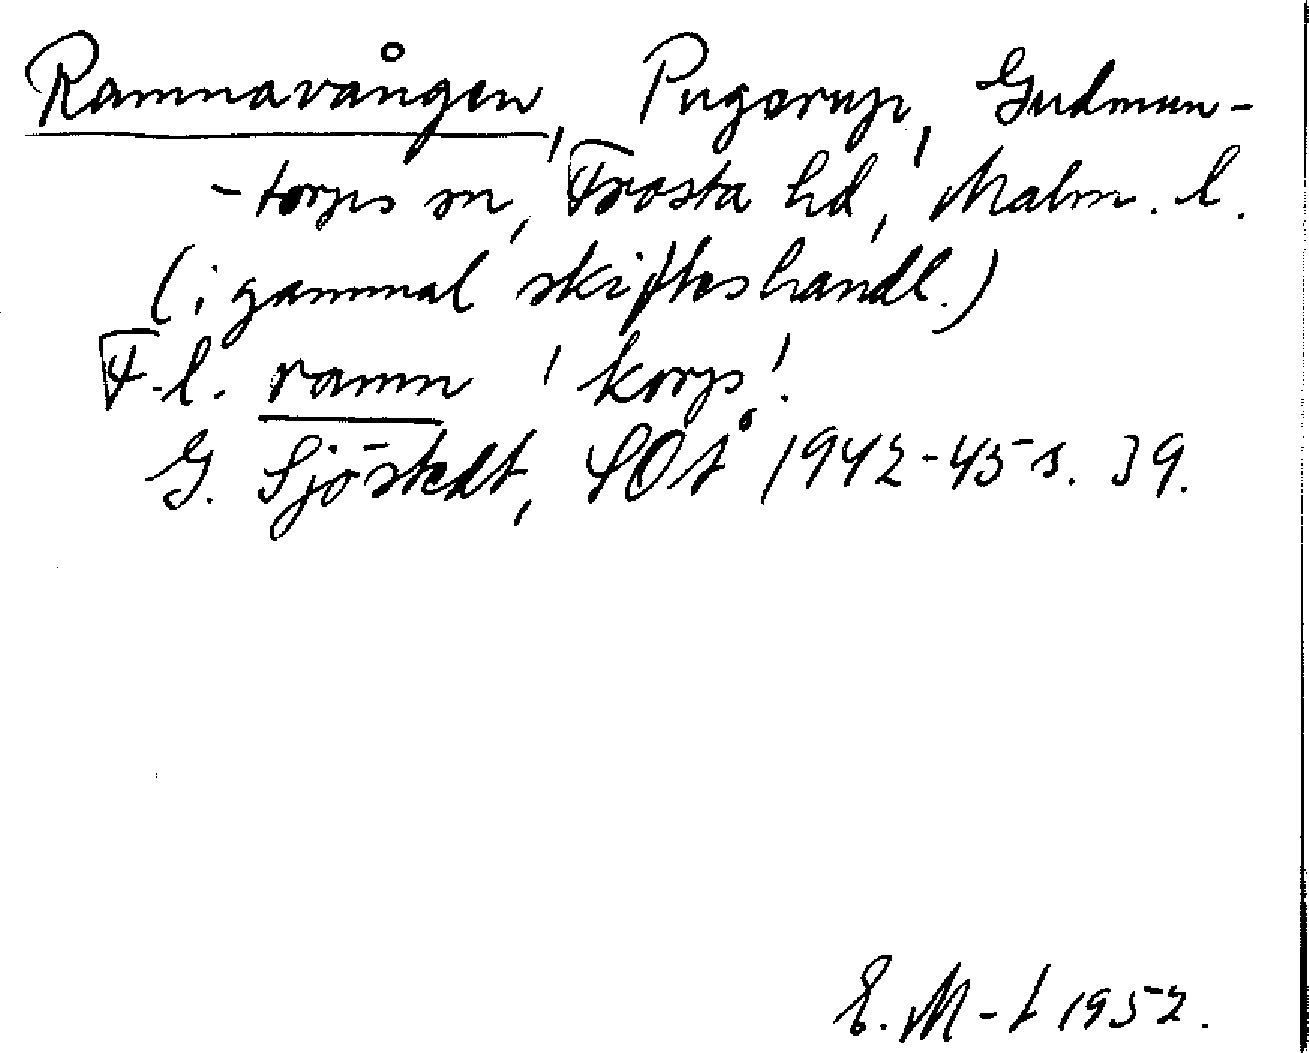 Ramnavången, Pugerup, Gudmun-
-torps sn, Frosta hd, Malm. l.
(i gammal skifteshandl.)
F.l. ramn 'korp'.
G. Sjöstedt, SOÅ 1942-45 s. 39.
E. M-t 1952.